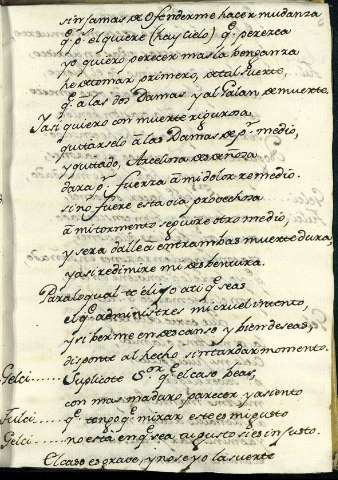 sin jamas de ofenderme hacer mudanza
q.e p.s el quiere (hay cielo) q.e perezca
yo quiero perecer mas la benganza
he de tomar primero, de tal suerte,
q.e a las dos Damas y al Galan de muerte.
Y asi quiero con muerte rigurosa
quitarselo à las Damas de p.r medio,
y quitado, Arcelina desdeñosa
dara p.r fuerza à mi dolor remedio.
si no fuere esta via probechosa
à mi tormento seguire otro medio,
y sera dalle à entrambas muerte dura,
y asi redimire mi desbentura.
Para lo qual te elijo a ti q.e seas
el q.e administres mi cruel intento,
y si berme en descanso y bien deseas,
disponte al hecho sin tardar momento.
Gelci...... Suplicote S.or q.e el caso beas,
con mas maduro parecer y asiento
Fulci...... q.e tengo q.e mirar este es mi gusto
Gelci...... no està en q.e sea a gusto si es injusto.
El caso es grave, y no se yo la suerte